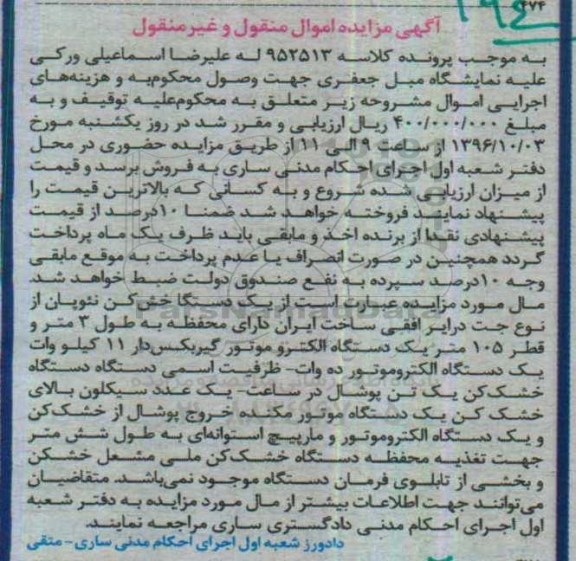 ۴۷۴
۱۹۴
آگهی مزایده اموال منقول و غیرمنقول
به موجب پرونده کلاسه ۹۵۲۵۱۳ له علیرضا اسماعیلی ورکی
علیه نمایشگاه مبل جعفری جهت وصول محکوم‌به و هزینه‌های
اجرایی اموال مشروحه زیر متعلق به محکوم‌علیه توقیف و به
مبلغ ۴۰۰/۰۰۰/۰۰۰ ریال ارزیابی و مقرر شد در روز یکشنبه مورخ
۱۳۹۶/۱۰/۰۳ از ساعت ۹ الی ۱۱ از طریق مزایده حضوری در محل
دفتر شعبه اول اجرای احکام مدنی ساری به فروش برسد و قیمت
از میزان ارزیابی شده شروع و به کسانی که بالاترین قیمت را
پیشنهاد نمایند فروخته خواهد شد ضمنا ۱۰درصد از قیمت
پیشنهادی نقدا از برنده اخذ و مابقی باید ظرف یک ماه پرداخت
گردد همچنین در صورت انصراف یا عدم پرداخت به موقع مابقی
وجه ۱۰درصد سپرده به نفع صندوق دولت ضبط خواهد شد.
مال مورد مزایده عبارت است از یک دستگا خش‌کن نئوپان از
نوع جت درایر افقی ساخت ایران دارای محفظه به طول ۳ متر و
قطر ۱۰۵ متر یک دستگاه الکترو موتور گیربکس‌دار ۱۱ کیلو وات
یک دستگاه الکتروموتور ده وات- ظرفیت اسمی دستگاه دستگاه
خشک‌کن یک تن پوشال در ساعت- یک عدد سیکلون بالای
خشک کن یک دستگاه موتور مکنده خروج پوشال از خشک‌کن
و یک دستگاه الکتروموتور و مارپیچ استوانه‌ای به طول شش متر
جهت تغذیه محفظه دستگاه خشک‌کن ملی مشعل خشکن
و بخشی از تابلوی فرمان دستگاه موجود نمی‌باشد. متقاضیان
می‌توانند جهت اطلاعات بیشتر از مال مورد مزایده به دفتر شعبه
اول اجرای احکام مدنی دادگستری ساری مراجعه نمایند.
دادورز شعبه اول اجرای احکام مدنی ساری- متقی
ParsNamadData